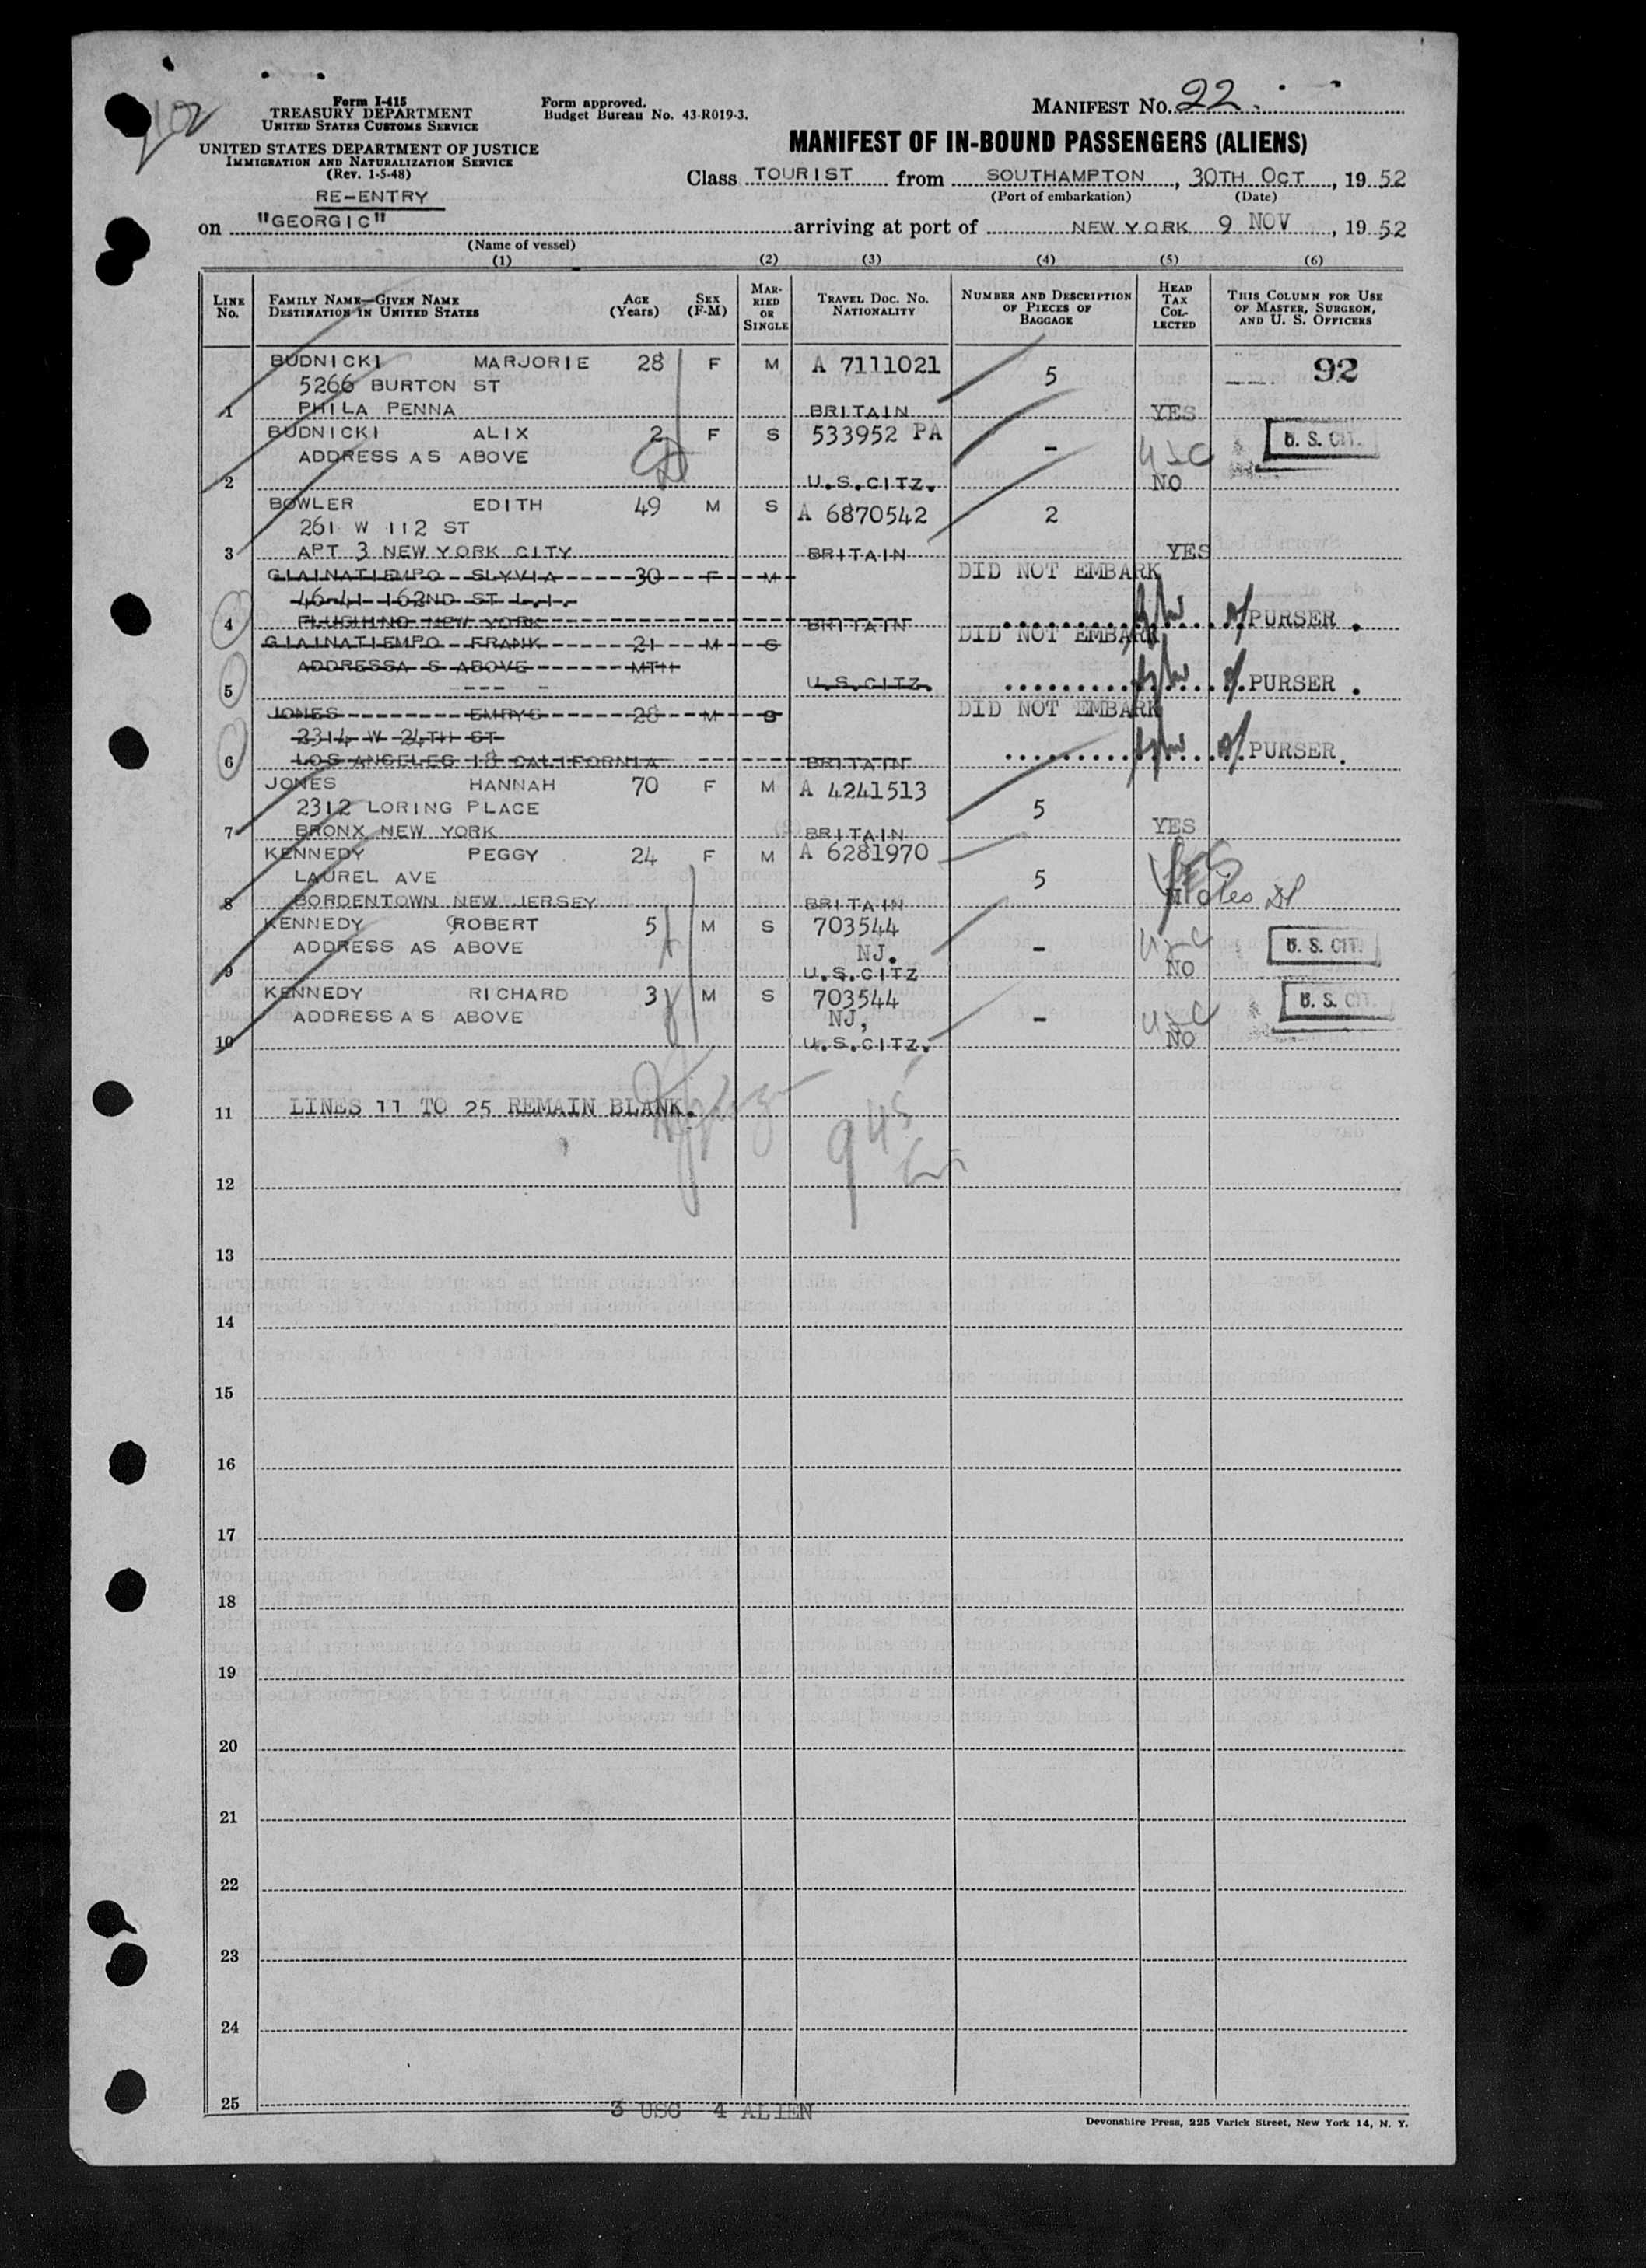 Form I-415
TREASURY DEPARTMENT
UNITED STATES CUSTOMS SERVICE
UNITED STATES DEPARTMENT OF JUSTICE
IMMIGRATION AND NATURALIZATION SERVICE
(Rev. 1-5-48)
RE-ENTRY
Form approved.
Budget Bureau No. 43-R019-3.
MANIFEST NO. 22
MANIFEST OF IN-BOUND PASSENGERS (ALIENS)
Class TOURIST from SOUTHAMPTON, 30TH OCT, 1952
(Port of embarkation) (Date)
on "GEORGIC" arriving at port of NEW YORK 9 NOV, 1952
(Name of vessel)
(1) (2) (3) (4) (5) (6)
LINE NO. FAMILY NAME—GIVEN NAME DESTINATION IN UNITED STATES AGE (YEARS) SEX (F-M) MARRIED OR SINGLE TRAVEL DOC. NO. NATIONALITY NUMBER AND DESCRIPTION OF PIECES OF BAGGAGE HEAD TAX COLLECTED THIS COLUMN FOR USE OF MASTER, SURGEON, AND U. S. OFFICERS
BUDNICKI MARJORIE 28 F M A 7111021 5 92
5266 BURTON ST
1 PHILA PENNA BRITAIN YES
BUDNICKI ALIX 2 F S 533952 PA - U. S. CIT.
ADDRESS AS ABOVE USC
2 U.S.CITZ. NO
BOWLER EDITH 49 M S A 6870542 2
261 W 112 ST
3 APT 3 NEW YORK CITY BRITAIN YES
GIAINATIEMPO SLYVIA 30 F M DID NOT EMBARK
46-41 162ND ST L.I.
4 FLUGHING NEW YORK BRITAIN PURSER.
GIAINATIEMPO FRANK 21 M S DID NOT EMBARK
ADDRESSA S ABOVE MTH
5 U.S.CITZ. PURSER.
JONES EMRYS 28 M S DID NOT EMBARK
2314 W 24TH ST
6 LOS ANGELES 18 CALIFORNIA BRITAIN PURSER.
JONES HANNAH 70 F M A 4241513
2312 LORING PLACE 5
7 BRONX NEW YORK BRITAIN YES
KENNEDY PEGGY 24 F M A 6281970
LAUREL AVE 5 YES
8 BORDENTOWN NEW JERSEY BRITAIN
KENNEDY ROBERT 5 M S 703544
ADDRESS AS ABOVE NJ. - USC U. S. CIT.
9 U.S.CITZ NO
KENNEDY RICHARD 3 M S 703544 U. S. CIT.
ADDRESSA S ABOVE NJ, - USC
10 U.S.CITZ. NO
11 LINES 11 TO 25 REMAIN BLANK.
945
12
13
14
15
16
17
18
19
20
21
22
23
24
25
3 USC 4 ALIEN
Devonshire Press, 225 Varick Street, New York 14, N. Y.